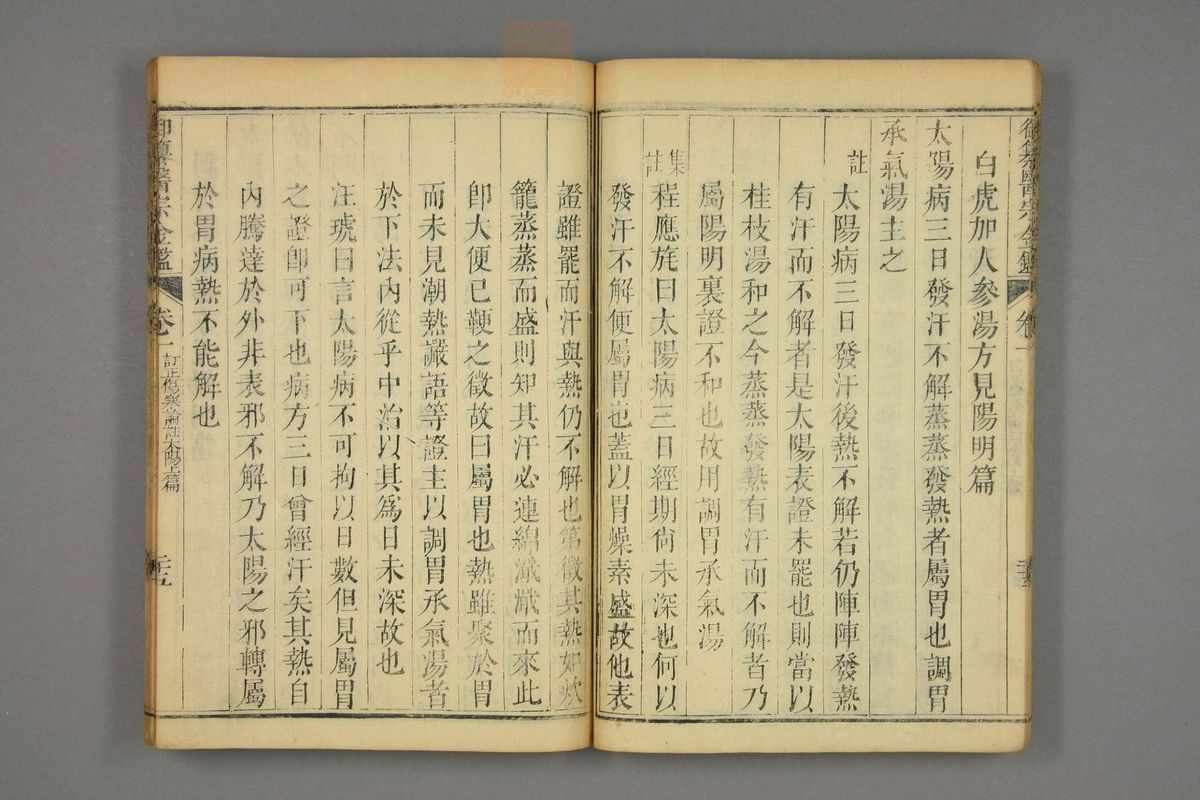 御纂醫宗金鑑 卷一
白虎加人參湯方見陽明篇
太陽病三日發汗不解蒸蒸發熱者屬胃也調胃
承氣湯主之
註 太陽病三日發汗後熱不解若仍陣陣發熱
有汗而不解者是太陽表證未罷也則當以
桂枝湯和之今蒸蒸發熱有汗而不解者乃
屬陽明裏證不和也故用調胃承氣湯
集註 程應旄曰太陽病三日經期尚未深也何以
發汗不解便屬胃也蓋以胃燥素盛故他表
證雖罷而汗與熱仍不解也第徵其熱如炊
籠蒸蒸而盛則知其汗必連綿濈濈而來此
卽大便已鞕之徵故曰屬胃也熱雖聚於胃
而未見潮熱讝語等證主以調胃承氣湯者
於下法內從乎中治以其爲日未深故也
汪琥曰言太陽病不可拘以日數但見屬胃
之證卽可下也病方三日曾經汗矣其熱自
內騰達於外非表邪不解乃太陽之邪轉屬
於胃病熱不能解也
御纂醫宗金鑑 卷一 訂正傷寒論註太陽上篇 三十九